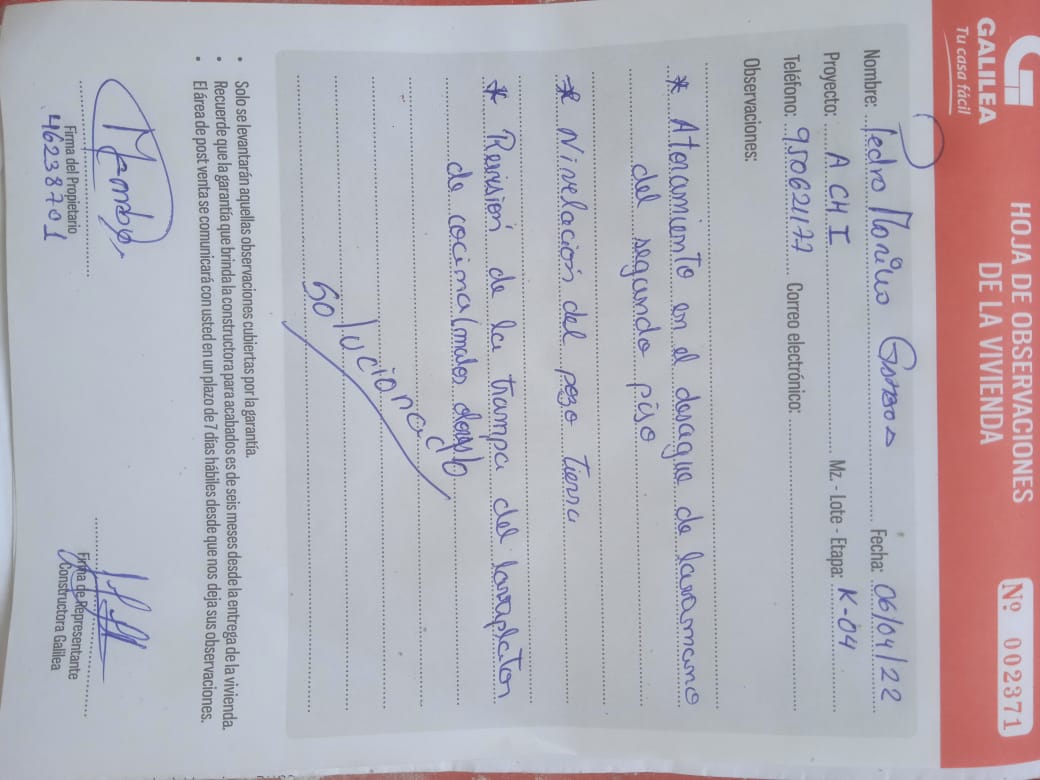 GALILEA
Tu casa fácil
HOJA DE OBSERVACIONES
DE LA VIVIENDA
Nº 002371
Nombre: Pedro Morillo Fecha: 06/04/22
Proyecto: A CH I Mz. - Lote - Etapa: K-04
Teléfono: 950621177 Correo electrónico:
Observaciones:
* Atoramiento en el desague de lavamano
del segundo piso
* Nivelacion del poso tierra
* Revision de la trampa del lavaplaton
de cocina (malos
solucionado
• Solo se levantarán aquellas observaciones cubiertas por la garantía.
• Recuerde que la garantía que brinda la constructora para acabados es de seis meses desde la entrega de la vivienda.
• El área de post venta se comunicará con usted en un plazo de 7 días hábiles desde que nos deja sus observaciones.
Firma del Propietario
46238701
Firma de Representante
Constructora Galilea